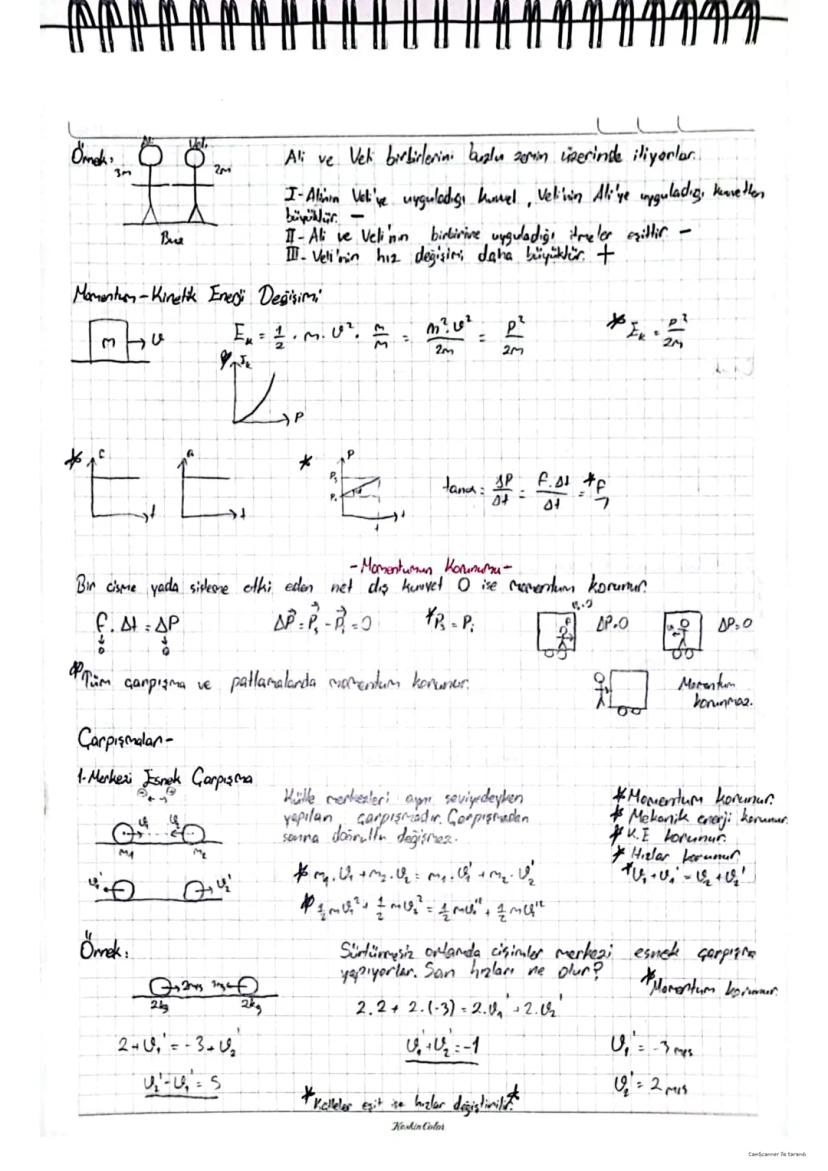 Örnek:
Ali Veli
3m 2m
Buz
Ali ve Veli birbirlerini buzlu zemin üzerinde itiyorlar.
I-Alinin Veli'ye uyguladığı kuvvet, Veli'nin Ali'ye uyguladığı kuvvetten
büyüktür. -
II- Ali ve Veli'nin birbirine uyguladığı itmeler eşittir -
III- Veli'nin hız değişimi daha büyüktür. +
Momentum-Kinetik Enerji Değişimi
m → υ
E_k = 1/2 . m . υ² . m/m = m².υ²/2m = p²/2m
* E_k = p²/2m
P
* F t
a t
* P
t
tanα = ΔP/Δt = F.Δt/Δt = *F
-Momentumun Korunumu-
Bir cisme yada sisteme etki eden net dış kuvvet 0 ise momentum korunur.
F. Δt = ΔP
0 0
ΔP = P_s - P_i = 0
*P_s = P_i
ΔP=0
ΔP=0
Tüm çarpışma ve patlamalarda momentum korunur.
Momentum
korunmaz.
Çarpışmalar-
1-Merkezi Esnek Çarpışma
υ₁ υ₂
m₁ m₂
υ₁' υ₂'
Kütle merkezleri aynı seviyedeyken
yapılan çarpışmadır. Çarpışmadan
sonra doğrultu değişmez.
* m₁.υ₁ + m₂.υ₂ = m₁.υ₁' + m₂.υ₂'
* Momentum korunur.
* Mekanik enerji korunur.
* K.E korunur.
* Hızlar korunur
*υ₁+υ₁' = υ₂+υ₂'
Örnek:
2m/s 3m/s
2kg 2kg
Sürtümesiz ortamda cisimler merkezi esnek çarpışma
yapıyorlar. Son hızları ne olur?
*Momentum korunur.
2.2 + 2.(-3) = 2.υ₁' + 2.υ₂'
2+υ₁' = -3+υ₂'
υ₁'+υ₂' = -1
υ₁' = -3 m/s
υ₂'-υ₁' = 5
υ₂' = 2 m/s
*Kütleler eşit ise hızlar değiştirilir.*
Keskin Color
CamScanner ile tarandı